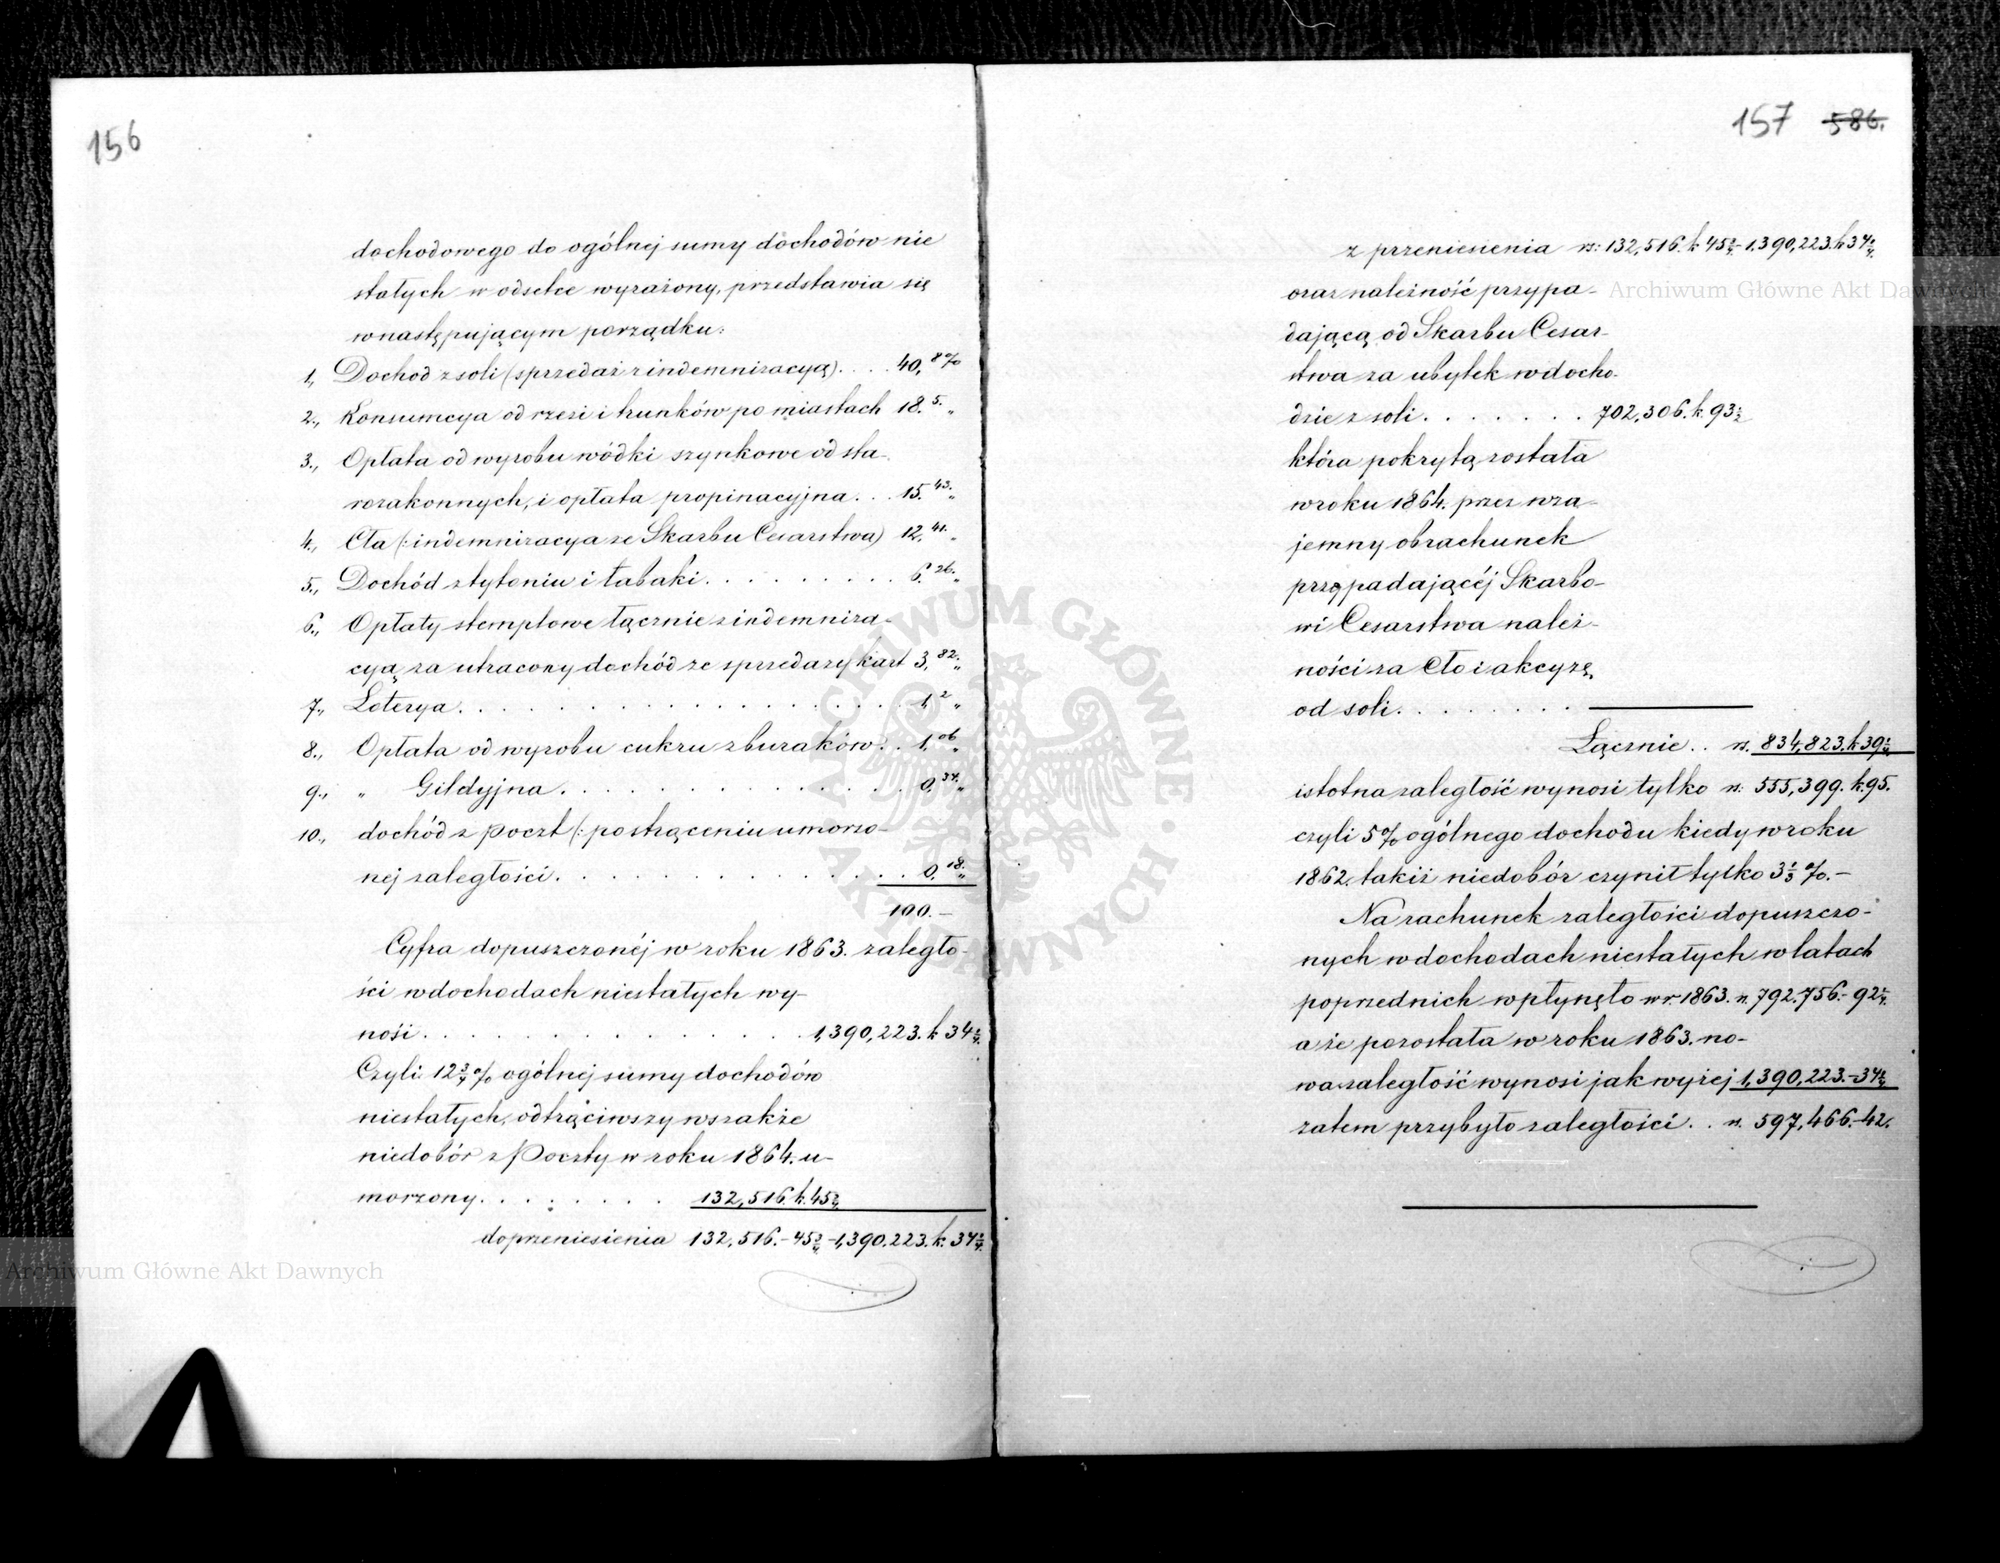 156
dochodowego do ogólnej sumy dochodów nie
stałych w odsetce wyrażony, przedstawia się
w następującym porządku:
1., Dochod z soli (sprzedaż z indemnizacyą) . . . . 40,8%
2., Konsumcya od rzezi i trunków po miastach 18.5. „
3., Opłata od wyrobu wódki szynkowe od sta-
rozakonnych, i opłata propinacyjna . . . 15.43. „
4., Cła (: indemnizacya ze Skarbu Cesarstwa) 12.41. „
5., Dochód z tytoniu i tabaki . . . . . . . . . 6.26. „
6., Opłaty stemplowe łącznie z indemniza-
cyą za utracony dochód ze sprzedaży kart 3,82. „
7., Loterya . . . . . . . . . . . . . . . . . . 1,2 „
8., Opłata od wyrobu cukru z buraków . . 1,06 „
9., „ Gildyjna . . . . . . . . . . . . . . 0,34 „
10., dochód z poczt (: po strąceniu umorzo-
nej zaległości . . . . . . . . . . . . . . 0.18. „
100.—
Cyfra dopuszczonéj w roku 1863. zaległo-
ści w dochodach niestałych wy-
nosi . . . . . . . . . . . . . . . 1,390,223. k 34
Czyli 12 3/4 % ogólnej sumy dochodów
niestałych, odtrąciwszy wszakże
niedobór z Poczty w roku 1864. u-
morzony . . . . . . . . 132,516. k. 45
do przeniesienia 132,516.-45 - 1,390.223. k: 34
157 586.
z przeniesienia rs: 132,516. k 45 - 1,390,223. k 34
oraz należność przypa-
dającą od Skarbu Cesar-
stwa za ubytek w docho-
dzie z soli . . . . . . . . 702,306. k. 93 1/2
która pokrytą została
w roku 1864. przez wza-
jemny obrachunek
przypadającéj Skarbo-
wi Cesarstwa należ-
ności za Cło i akcyzę
od soli . . . . . . . .
Łącznie . . rs. 834,823. k 39
istotna zaległość wynosi tylko rs: 555,399. k 95.
czyli 5% ogólnego dochodu kiedy w roku
1862. takiż niedobór czynił tylko 3 1/3 %.—
Na rachunek zaległości dopuszczo-
nych w dochodach niestałych w latach
poprzednich wpłynęło w r. 1863. rs. 792.756.- 92
a że pozostała w roku 1863. no-
wa zaległość wynosi jak wyżej 1,390,223.- 34
zatem przybyło zaległości . . rs. 597,466.-42.
Archiwum Główne Akt Dawnych
Archiwum Główne Akt Dawnych
ARCHIWUM GŁÓWNE AKT DAWNYCH